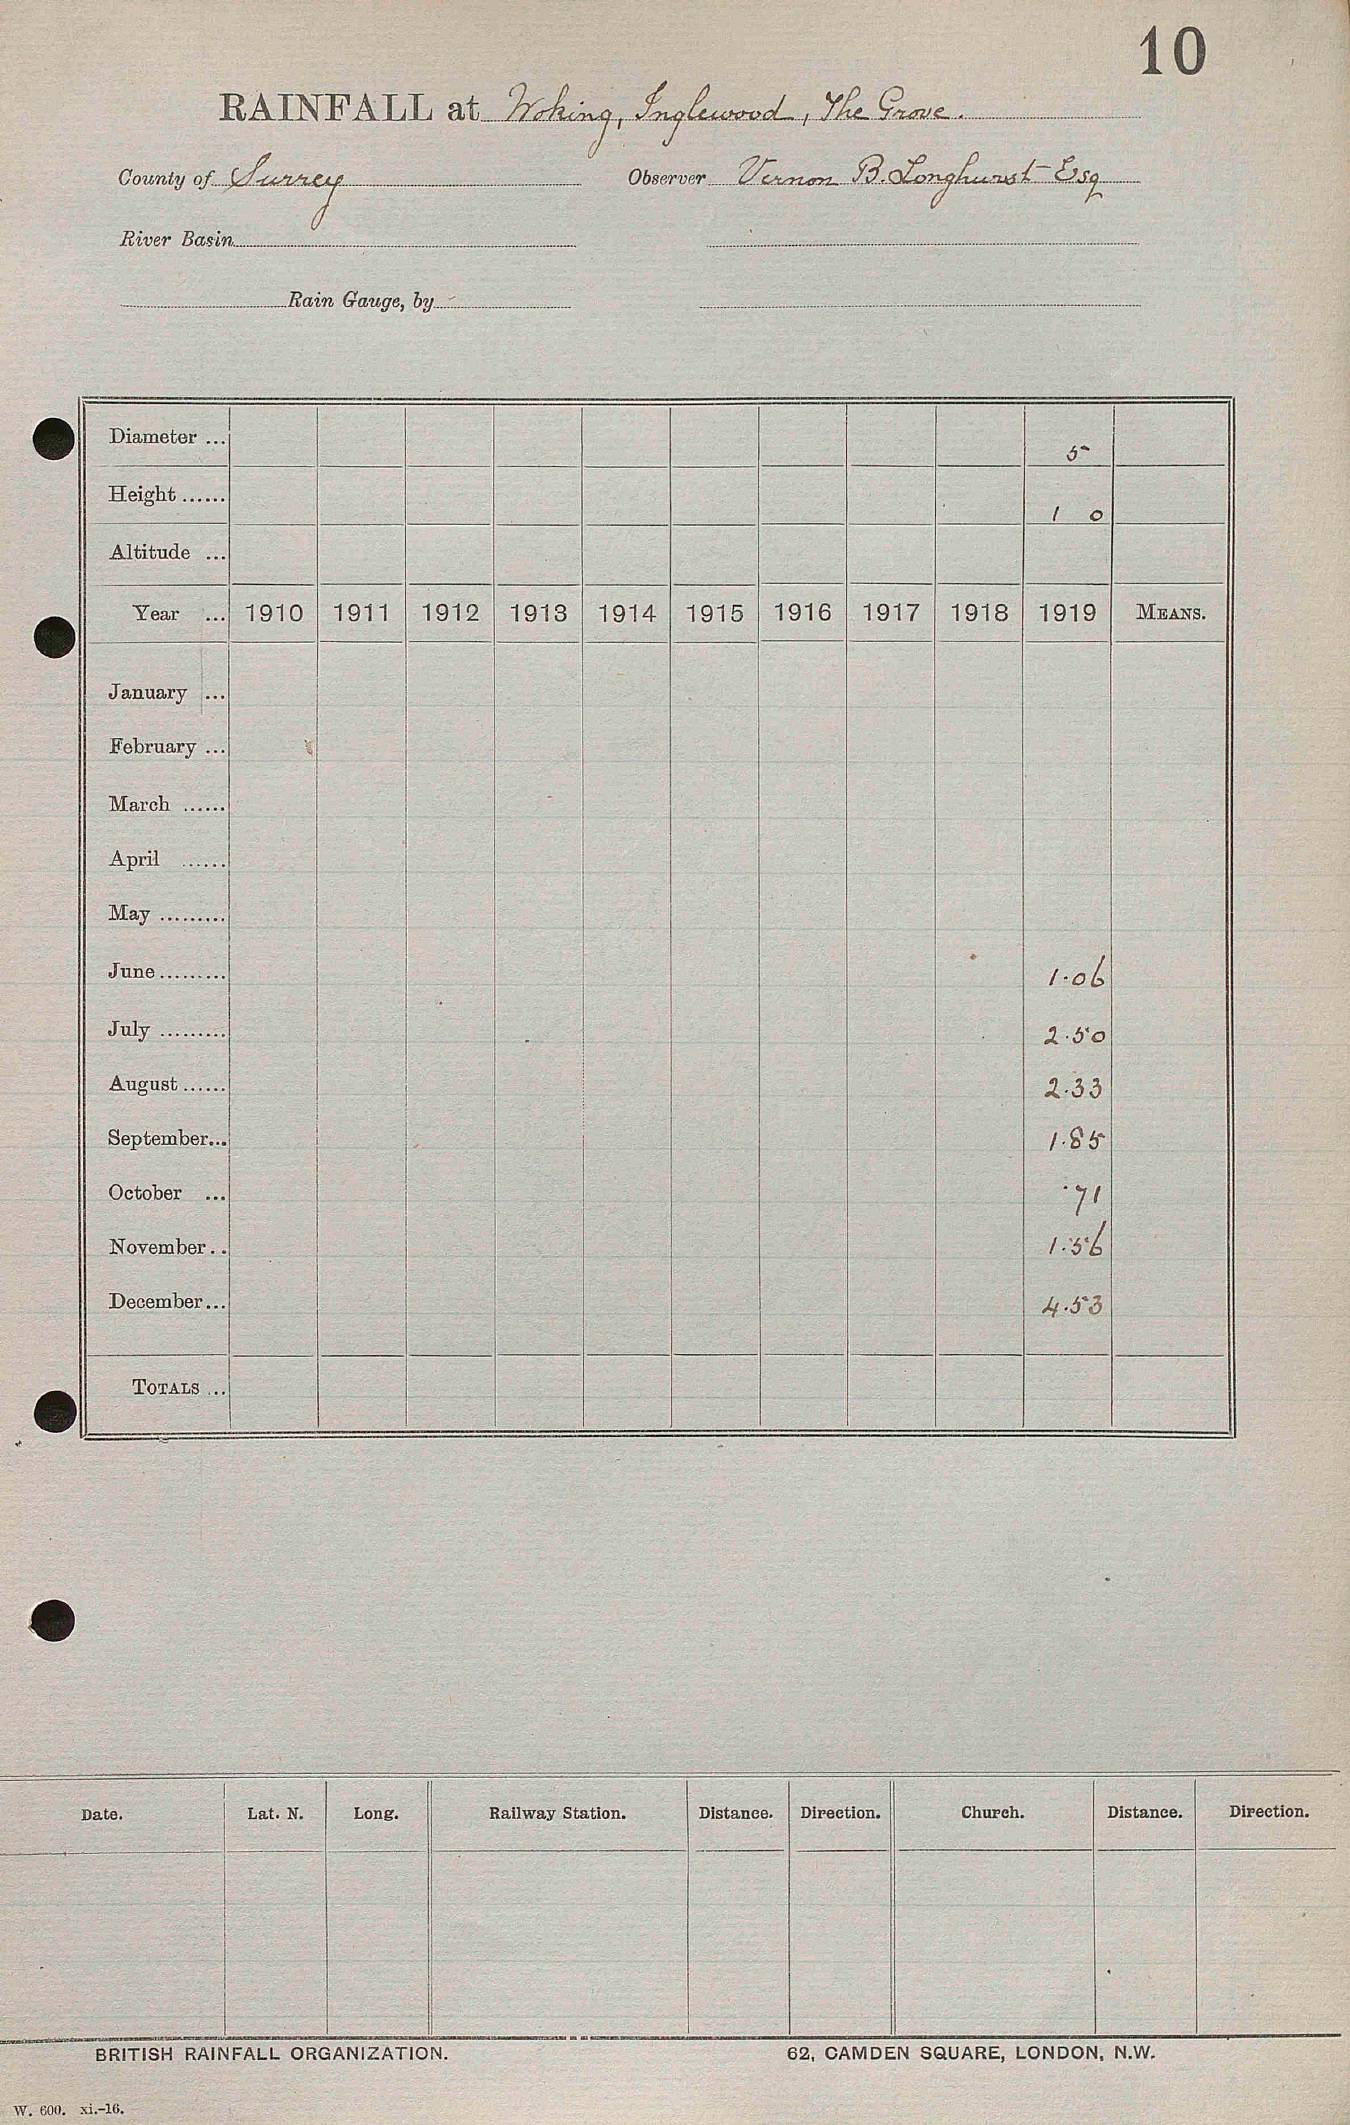 10
RAINFALL at Woking, Inglewood, The Grove.
County of Surrey Observer Vernon B. Longhurst Esq
River Basin
Rain Gauge, by
Diameter ... 5
Height ...... 1 0
Altitude ...
Year ... 1910 1911 1912 1913 1914 1915 1916 1917 1918 1919 MEANS.
January ...
February ...
March ......
April ......
May .........
June ......... 1.06
July ......... 2.50
August ...... 2.33
September... 1.85
October ... .71
November.. 1.56
December... 4.53
TOTALS ...
Date. Lat. N. Long. Railway Station. Distance. Direction. Church. Distance. Direction.
BRITISH RAINFALL ORGANIZATION. 62, CAMDEN SQUARE, LONDON, N.W.
W. 600. xi.-16.